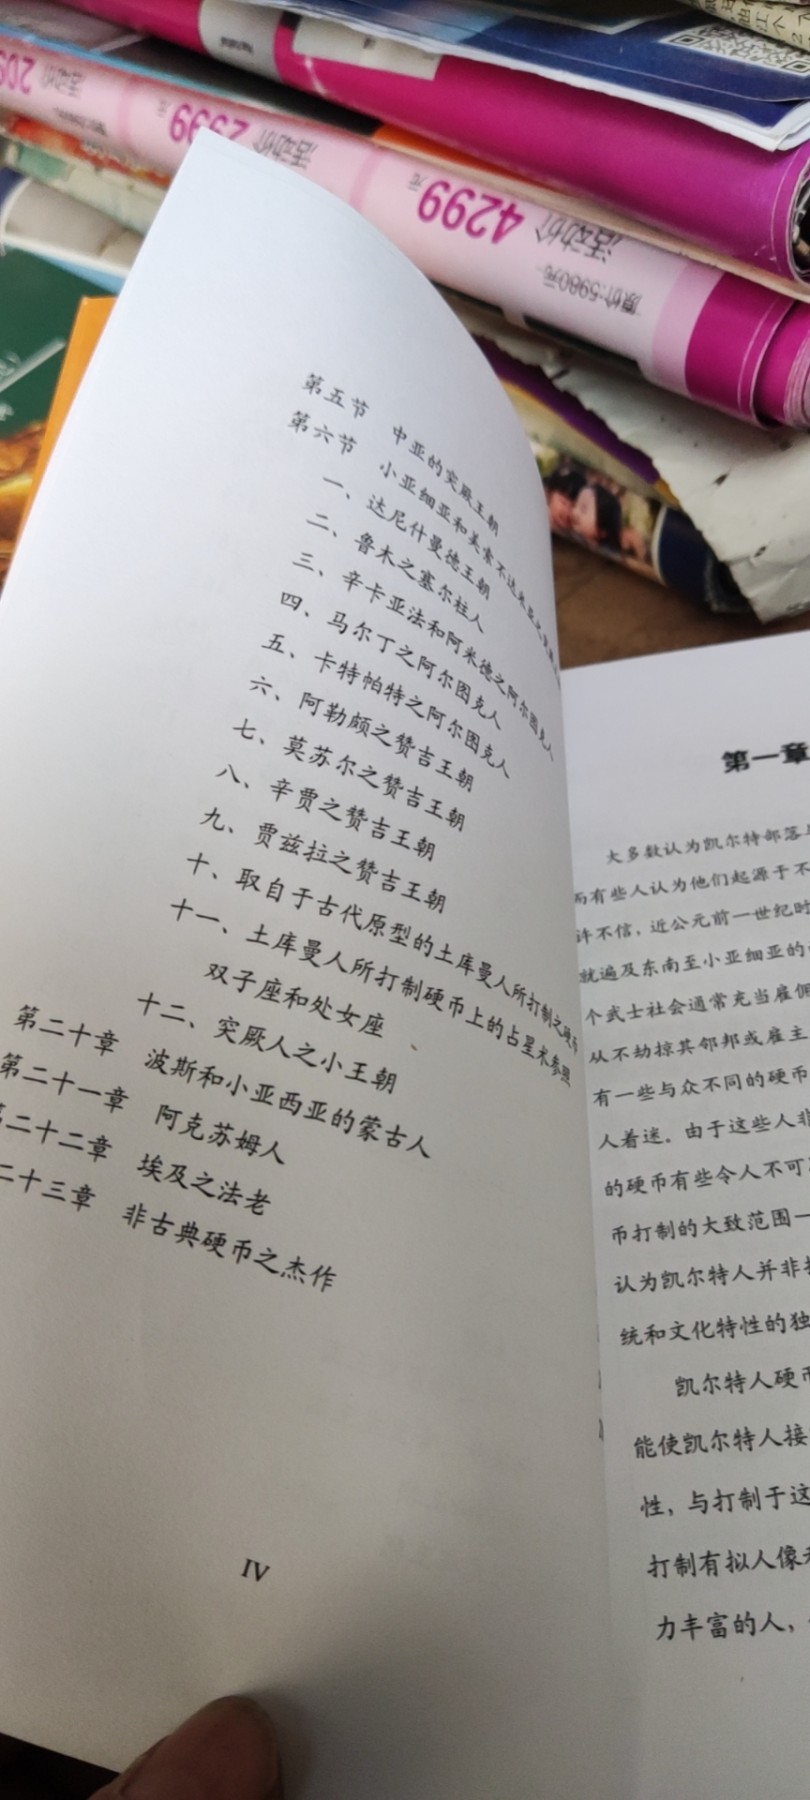 活动价 2999
活动价 4299元
原价:5980元
第五节 中亚的突厥王朝
第六节 小亚细亚和美索不达米亚之
一、达尼什曼德王朝
二、鲁木之塞尔柱人
三、辛卡亚法和阿米德之阿尔图克人
四、马尔丁之阿尔图克人
五、卡特帕特之阿尔图克人
六、阿勒颇之赞吉王朝
七、莫苏尔之赞吉王朝
八、辛贾之赞吉王朝
九、贾兹拉之赞吉王朝
十、取自于古代原型的土库曼人所打制之硬币
十一、土库曼人所打制硬币上的占星术参照
双子座和处女座
十二、突厥人之小王朝
第二十章 波斯和小亚西亚的蒙古人
第二十一章 阿克苏姆人
第二十二章 埃及之法老
二十三章 非古典硬币之杰作
IV
第一章
大多数认为凯尔特部落
而有些人认为他们起源于不
许不信，近公元前一世纪时
就遍及东南至小亚细亚的
个武士社会通常充当雇佣
从不劫掠其邻邦或雇主
有一些与众不同的硬币
人着迷。由于这些人非
的硬币有些令人不可
币打制的大致范围一
认为凯尔特人并非
统和文化特性的独
凯尔特人硬币
能使凯尔特人接
性，与打制于这
打制有拟人像
力丰富的人，